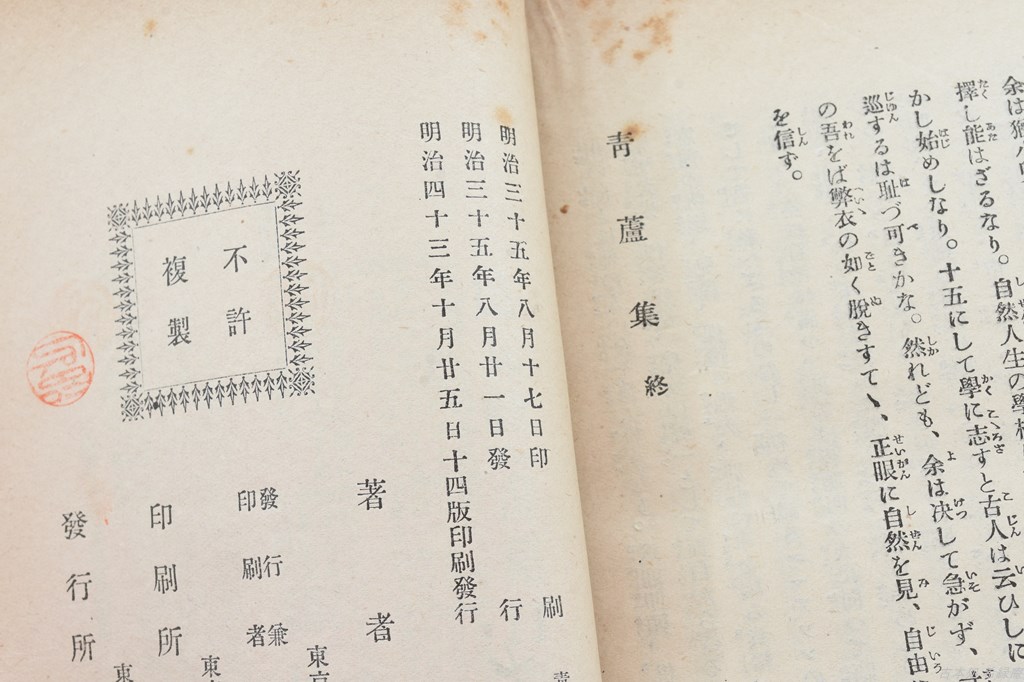 余は猶
擇し能はざるなり。自然人生の學
かし始めしなり。十五にして學に志すと古人は云ひしに
巡するは耻づ可きかな。然れども、余は決して急がず、
の吾をば弊衣の如く脱きすてヽ、正眼に自然を見、自由
を信ず。
靑蘆集 終
明治三十五年八月十七日印刷
明治三十五年八月廿一日發行
明治四十三年十月廿五日十四版印刷發行
不許
複製
著者
東京
發行兼
印刷者
東
印刷所
東
發行所